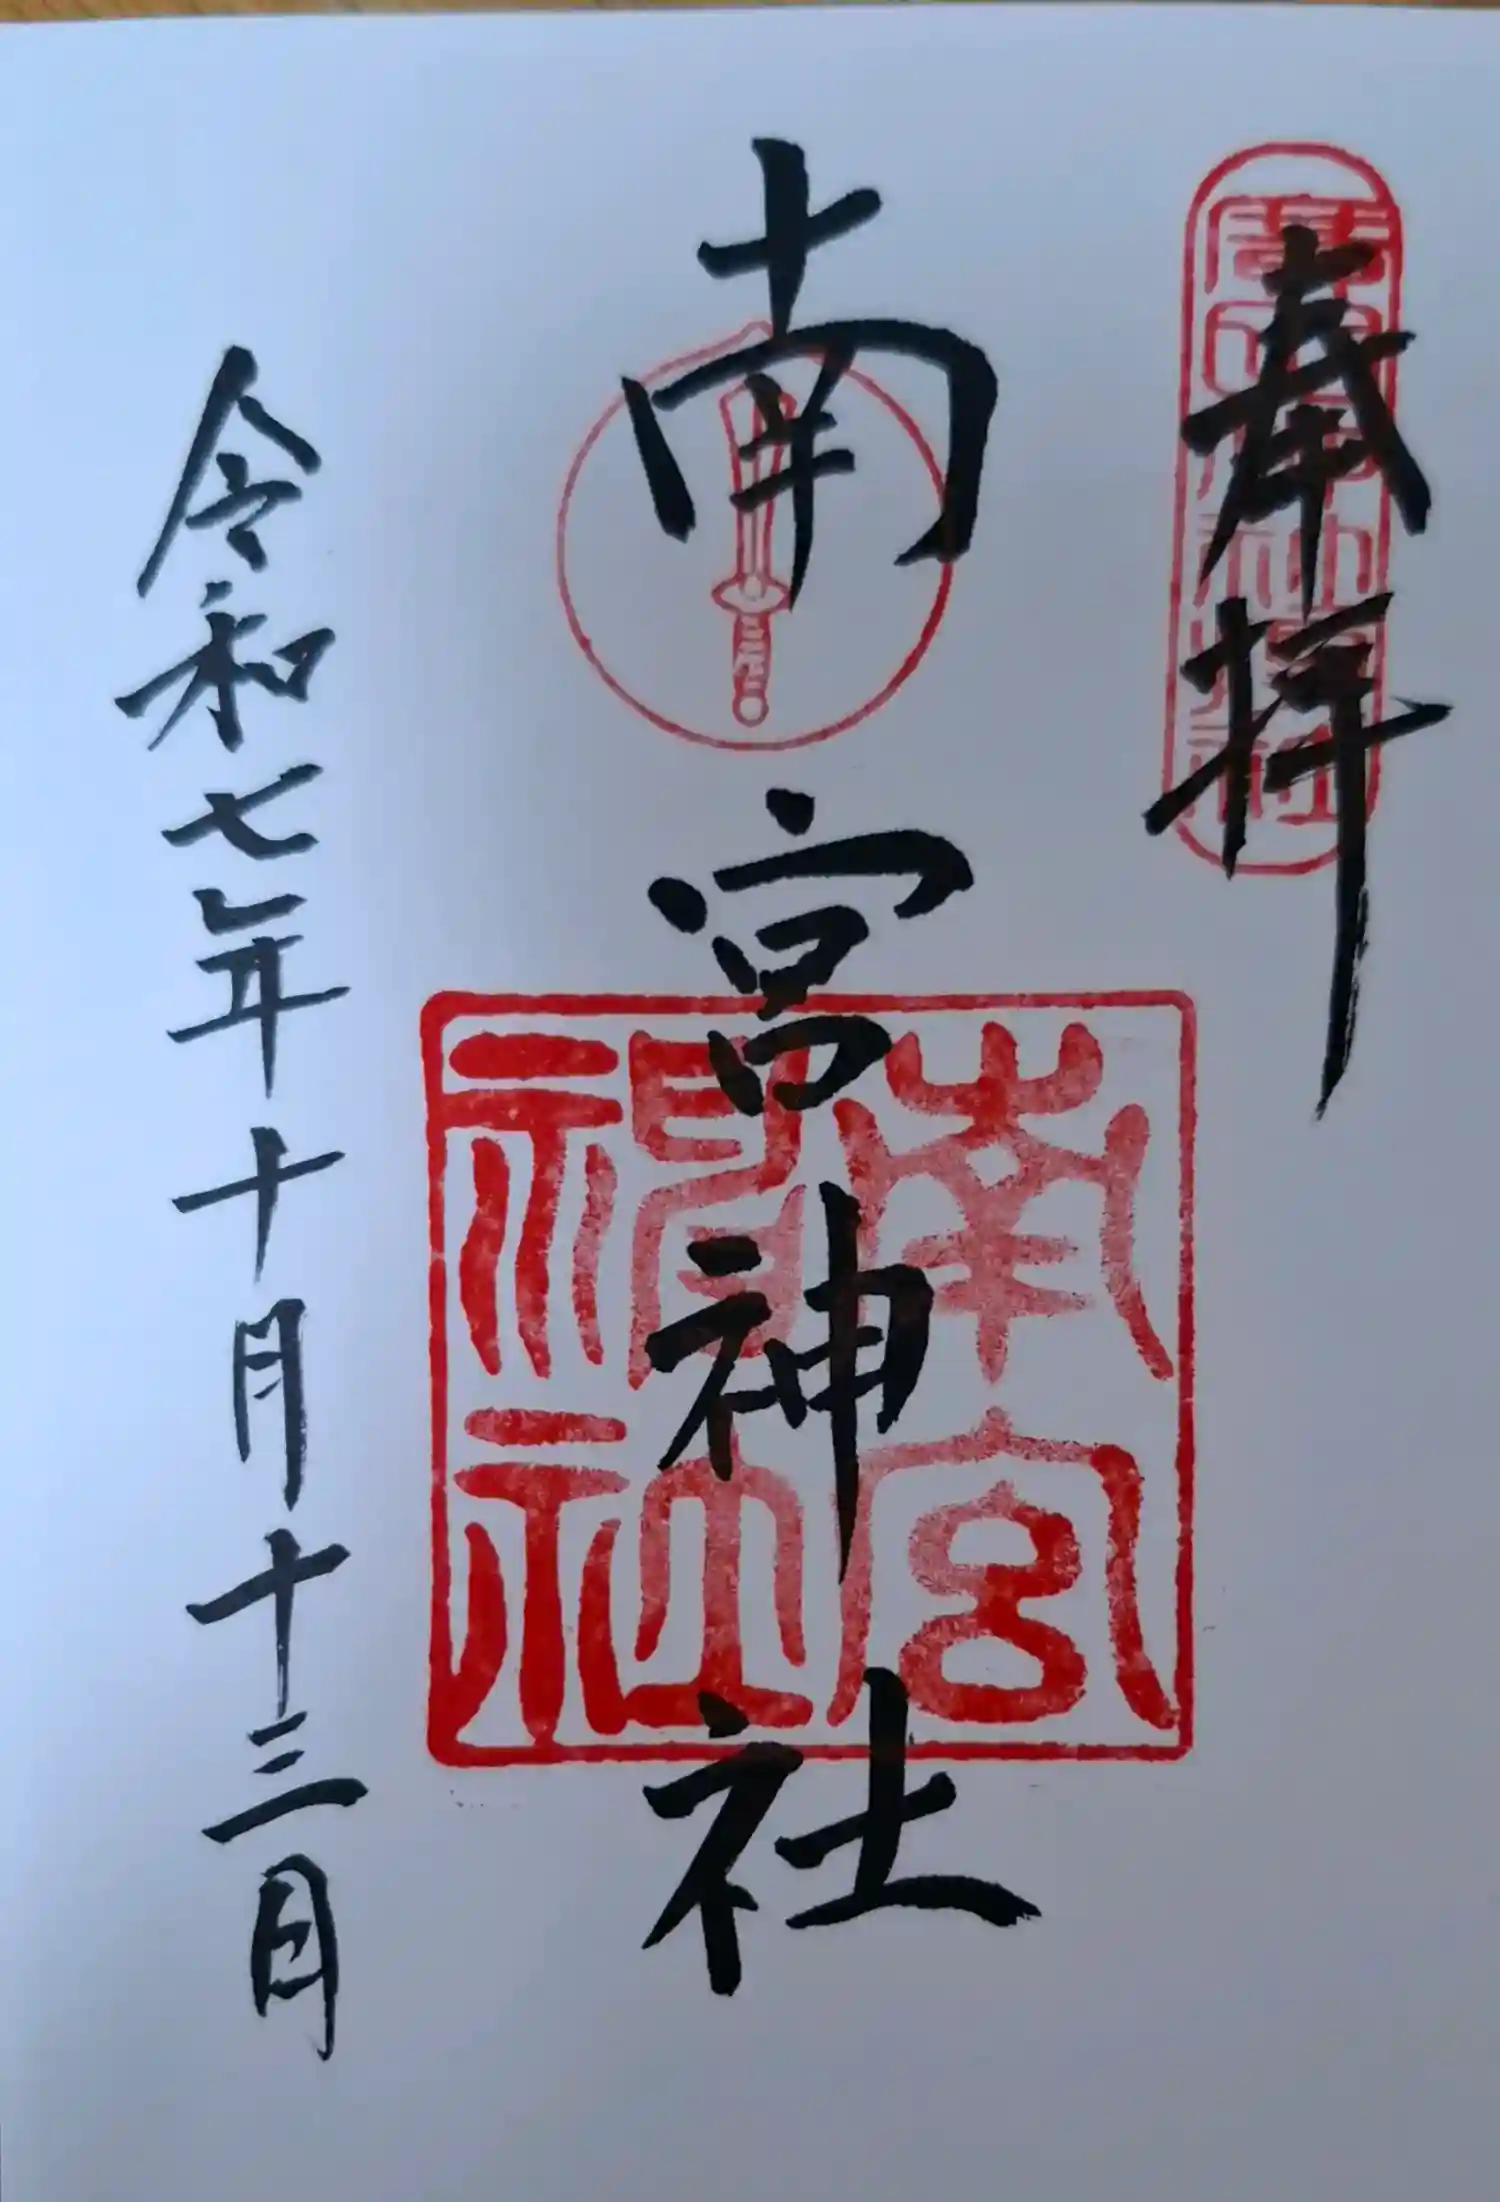 奉拝
南宮神社
南宮神社
令和七年十月十三日